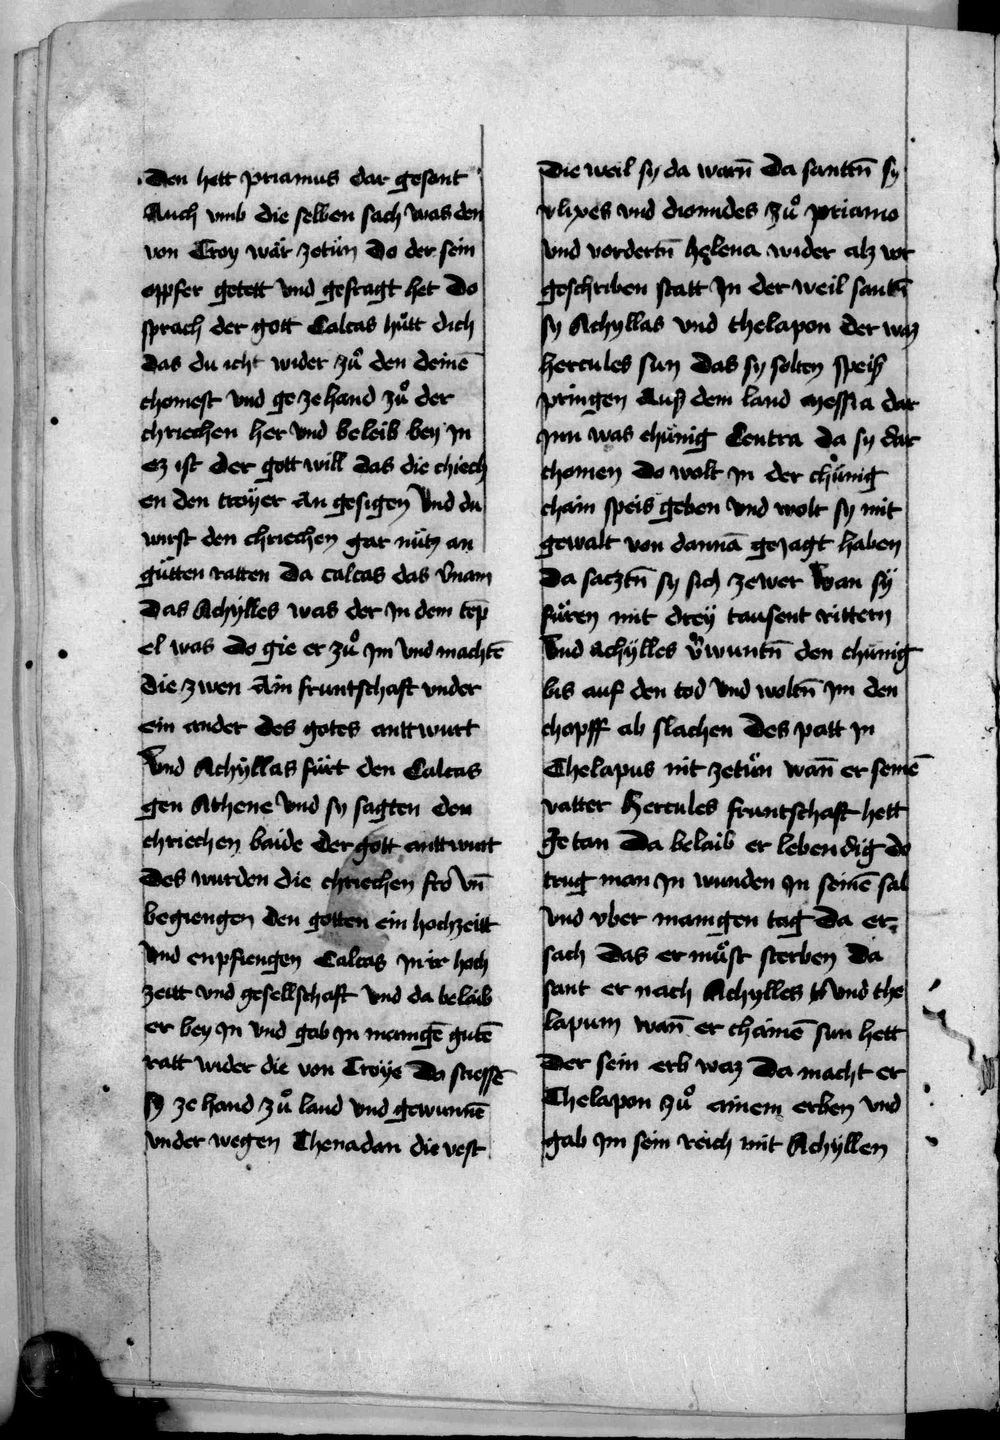 Den hett priamus dar gesant
Auch vmb die selben sach was den
von Troy wär zetün Do der sein
oppfer getett vnd gefragt het Do
sprach der gott Calcas hütt dich
das du icht wider zuͦ den deinē
chomest vnd ge ze hand zuͦ der
chriechen her vnd beleib bey In
ez ist der gott will das die chiech
en den troyer an gesigen Vnd du
wirst den chriechen gar nütz an
gütten ratten Da calcas das v̄nam
Das Achylles was der In dem tēp
el was Do gie er zuͦ Im vnd machtē
die zwen Ain fruntschaft vnder
ein ander des gotes anttwurt
Vnd Achyllas fürt den Calcas
gen Athene Vnd sy sagten den
chriechen baide der gott anttwurt
Des wurden die chriechen fro vn̄
begiengen den gotten ein hochzeitt
Vnd enpfiengen Calcas In ir hoch
zeitt vnd gesellschaft Vnd da belaib
er bey In vnd gab In manigē gutē
ratt wider die von Troye Do stiessē
sy ze hand zuͦ land vnd gewunnē
vnder wegen Thenadan die vest
Die weil sy da warn̄ Da santtn̄ sy
vlixes vnd diomides zuͦ priamo
vnd vordertn̄ helena wider alz vor
geschriben statt In der weil santtn̄
sy Achyllas vnd thelapon der waz
hercules sun das sy solten speiß
pringen Auß dem land messia dar
Inn was chünig Centra da sy dar
chomen Do wolt In der chünig
chain speis geben vnd wolt sy mit
gewalt von dannā geJagt haben
Da sacztn̄ sy sich ze wer Wan sy
füren mit drey tausent rittern
Vnd achylles v̄wuntn̄ den chünig
bis auf den tod Vnd woltn̄ Im den
chopff ab slachen Des patt In
Thelapus nit zetün wan̄ er seinē
vatter Hercules fruntschaft hett
Getan Da belaib er lebendig do
trug man In wunden In seinē sal
vnd vber manigen tag Da er
sach Das er müst sterben Da
sant er nach Achylles vnd the
lapum wan̄ er chainē sun hett
Der sein erb waz Da macht er
Thelapon zuͦ einem erben vnd
gab Im sein reich mit Achyllen